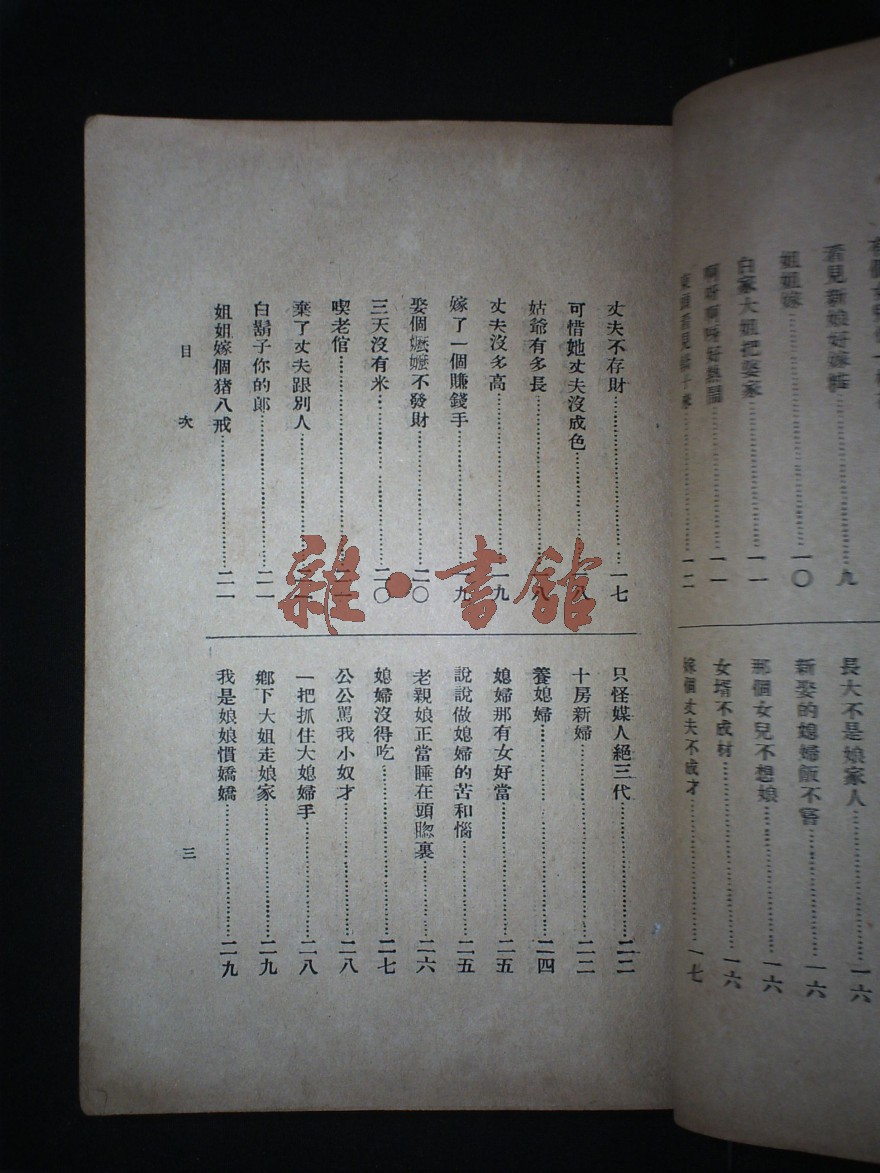 看見新娘好嫁粧………九
姐姐嫁………一〇
白家大姐把娶家………一一
啊呀啊呀好熱鬧………一一
長大不是娘家人………一六
新娶的媳婦飯不嘗………一六
那個女兒不想娘………一六
女壻不成材………一六
嫁個丈夫不成才………一七
丈夫不存財………一七
可惜她丈夫沒成色………一八
姑爺有多長………一八
丈夫沒多高………一九
嫁了一個賺錢手………一九
娶個嬤嬤不發財………二〇
三天沒有米………二〇
喫老倌………二一
棄了丈夫跟別人………二一
白鬍子你的郎………二一
姐姐嫁個猪八戒………二一
只怪媒人絕三代………二二
十房新婦………二二
養媳婦………二四
媳婦那有女好當………二五
說說做媳婦的苦和惱………二五
老親娘正當睡在頭㹅裏………二六
媳婦沒得吃………二七
公公罵我小奴才………二八
一把抓住大媳婦手………二八
鄉下大姐走娘家………二九
我是娘娘慣嬌嬌………二九
目次
三
雜·書館